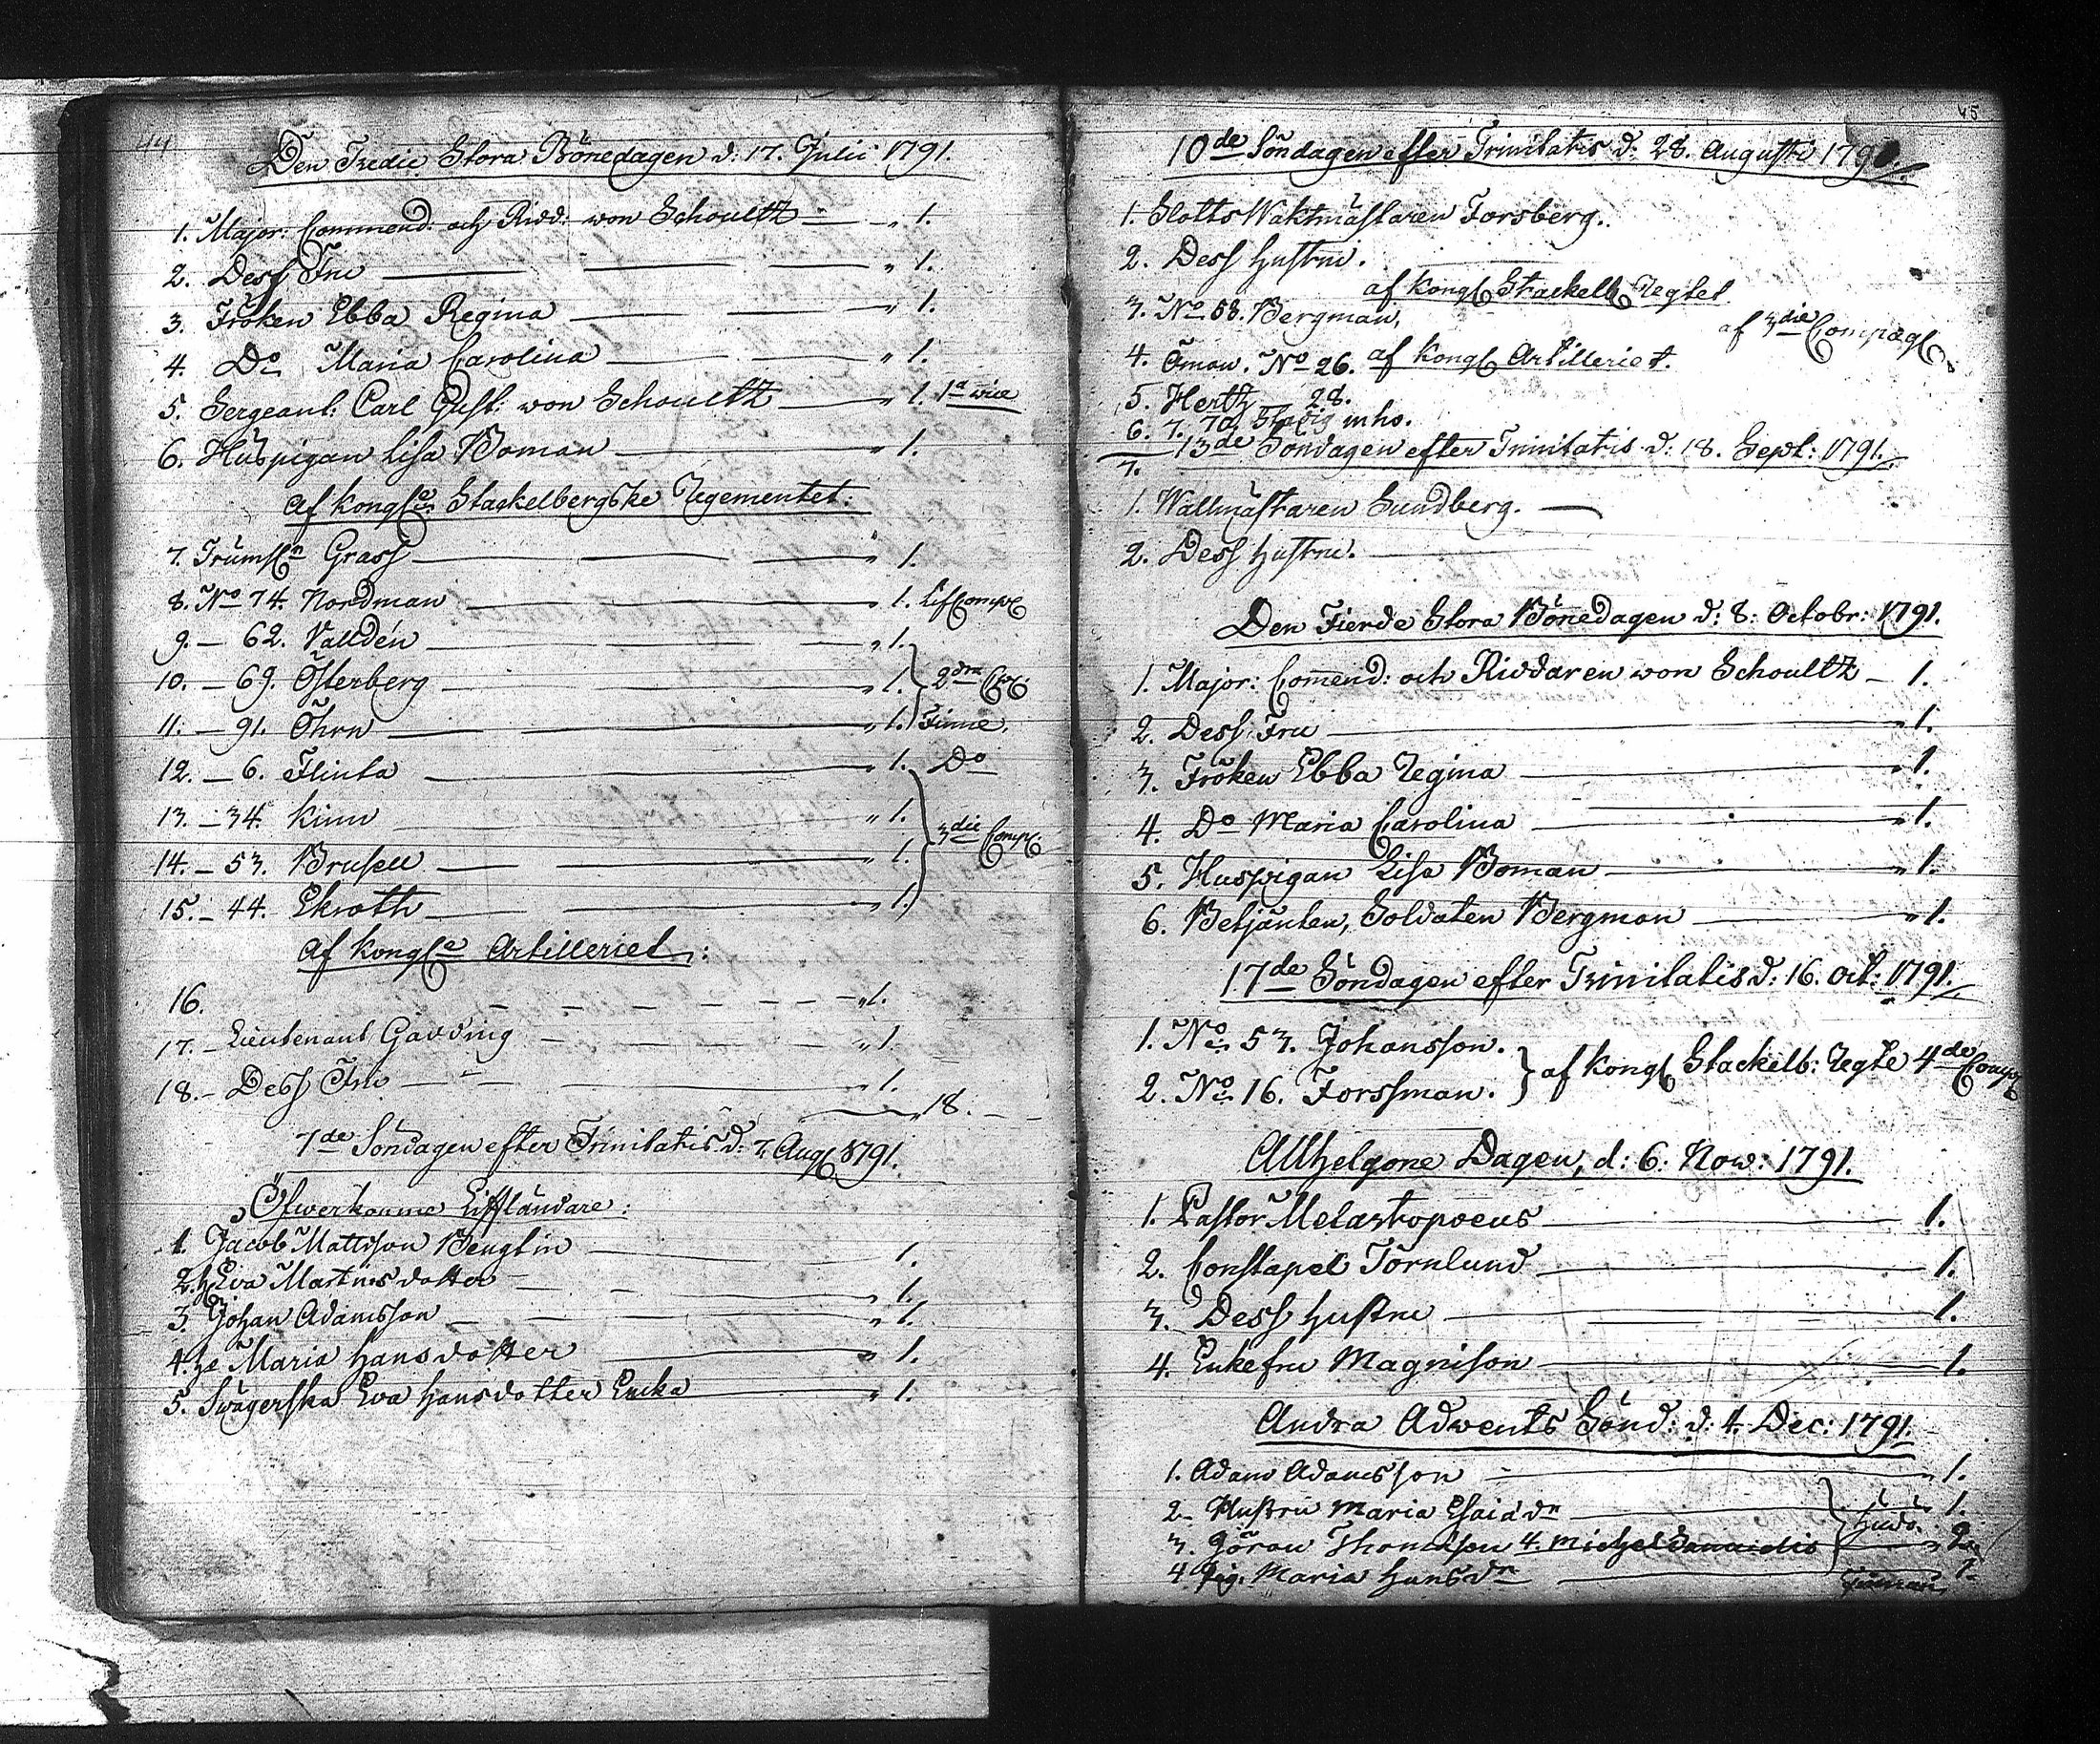 44
Den Tredie Stora Bönedagen d: 17. Julii 1791.
1. Major: Commend: och Ridd: von Schoultz — „ 1.
2. Dess Fru — „ 1.
3. Fröken Ebba Regina — „ 1.
4. Do Maria Carolina — „ 1.
5. Sergeant: Carl Gust: von Schoultz — „ 1. 1a vice
6. Huspigan Lisa Boman — „ 1.
af Kongl Stackelbergske Regementet:
7. Trumsln Grass — „ 1.
8. No 74. Nordman — „ 1. LifCompl
9. — 62. Valldén — „ 1.
10. — 69. Österberg — „ 1. 2dra
11. — 91. Öhrn — „ 1. Finne.
12. — 6. Flinta — „ 1. Do
13. — 34. Kinn — „ 1.
14. — 53. Brusell — „ 1. 3die Comp
15. — 44. Ekroth — „ 1.
af Kongl Artilleriet:
16. — „ 1.
17. — Lieutenant Gadding — „ 1.
18. — Dess Fru — „ 1.
„ 18. —
7de Söndagen efter Trinitatis d: 7. Aug 1791.
Öfwerkomne Lifländare:
1. Jacob Mattsson Bengtin — 1.
2. h Eva Martinsdotter — „ 1.
3. Johan Adamsson — „ 1.
4. h Maria Hansdotter — „ 1.
5. Swägerska Eva Hansdotter Encka — „ 1.
45
10de Söndagen efter Trinitatis d: 28. Augusti 1791.
1. SlottsWaktmästaren Forsberg.
2. Dess Hustru.
af Kongl Stackelb Regtet
3. No 58. Bergman, af 3die Compagl
4. Öman. No 26. af Kongl Artilleriet.
5. Hertz — 28.
6. 7.
7.
13de Söndagen efter Trinitatis d: 18. Sept: 1791.
1. Wallmästaren Sundberg. —
2. Dess Hustru.
Den Fierde Stora Bönedagen d: 8. Octobr: 1791.
1. Major: Comend: och Riddaren von Schoultz — 1.
2. Dess Fru — „ 1.
3. Fröken Ebba Regina — „ 1.
4. Do Maria Carolina — „ 1.
5. Huspigan Lisa Boman — „ 1.
6. Betjänten, Soldaten Bergman — „ 1.
17de Söndagen efter Trinitatis d: 16. Oct: 1791.
1. No 53. Johansson.
af Kongl Stackelb: Regte 4de Comp
2. No 16. Forssman.
Allhelgone Dagen, d: 6: Now: 1791.
1. Pastor Melartopoeus — 1.
2. Constapel Törnlund — 1.
3. Dess Hustru — 1.
4. Enkefru Magnison — 1.
Andra Adwents Sönd: d: 4. Dec: 1791.
1. Adam Adamsson — „ 1.
2. Hustru Maria Esaiadn — „ 1.
3. Göran Thomasson 4.
4 Pig. Maria Hansdn — 1.